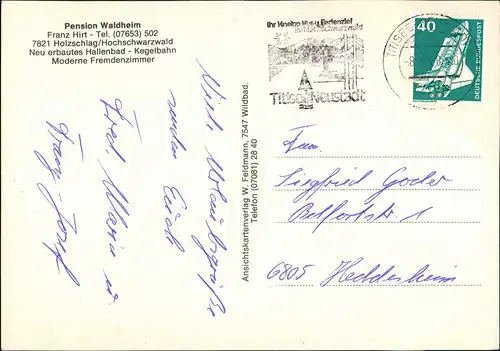 Pension Waldheim
Franz Hirt - Tel. (07653) 502
7821 Holzschlag/Hochschwarzwald
Neu erbautes Hallenbad - Kegelbahn
Moderne Fremdenzimmer
Viele Urlaubsgrüße
senden Euch
Fred, Maria u.
Franz-Josef
Ansichtskartenverlag W. Feldmann, 7547 Wildbad,
Telefon (07081) 28 40
Ihr Kneipp-Kur- u. Ferienziel
im Hochschwarzwald
Titisee-Neustadt
TITISEE
40
DEUTSCHE BUNDESPOST
Fam.
Siegfried Goder
Belfortstr. 1
6805 Heddesheim